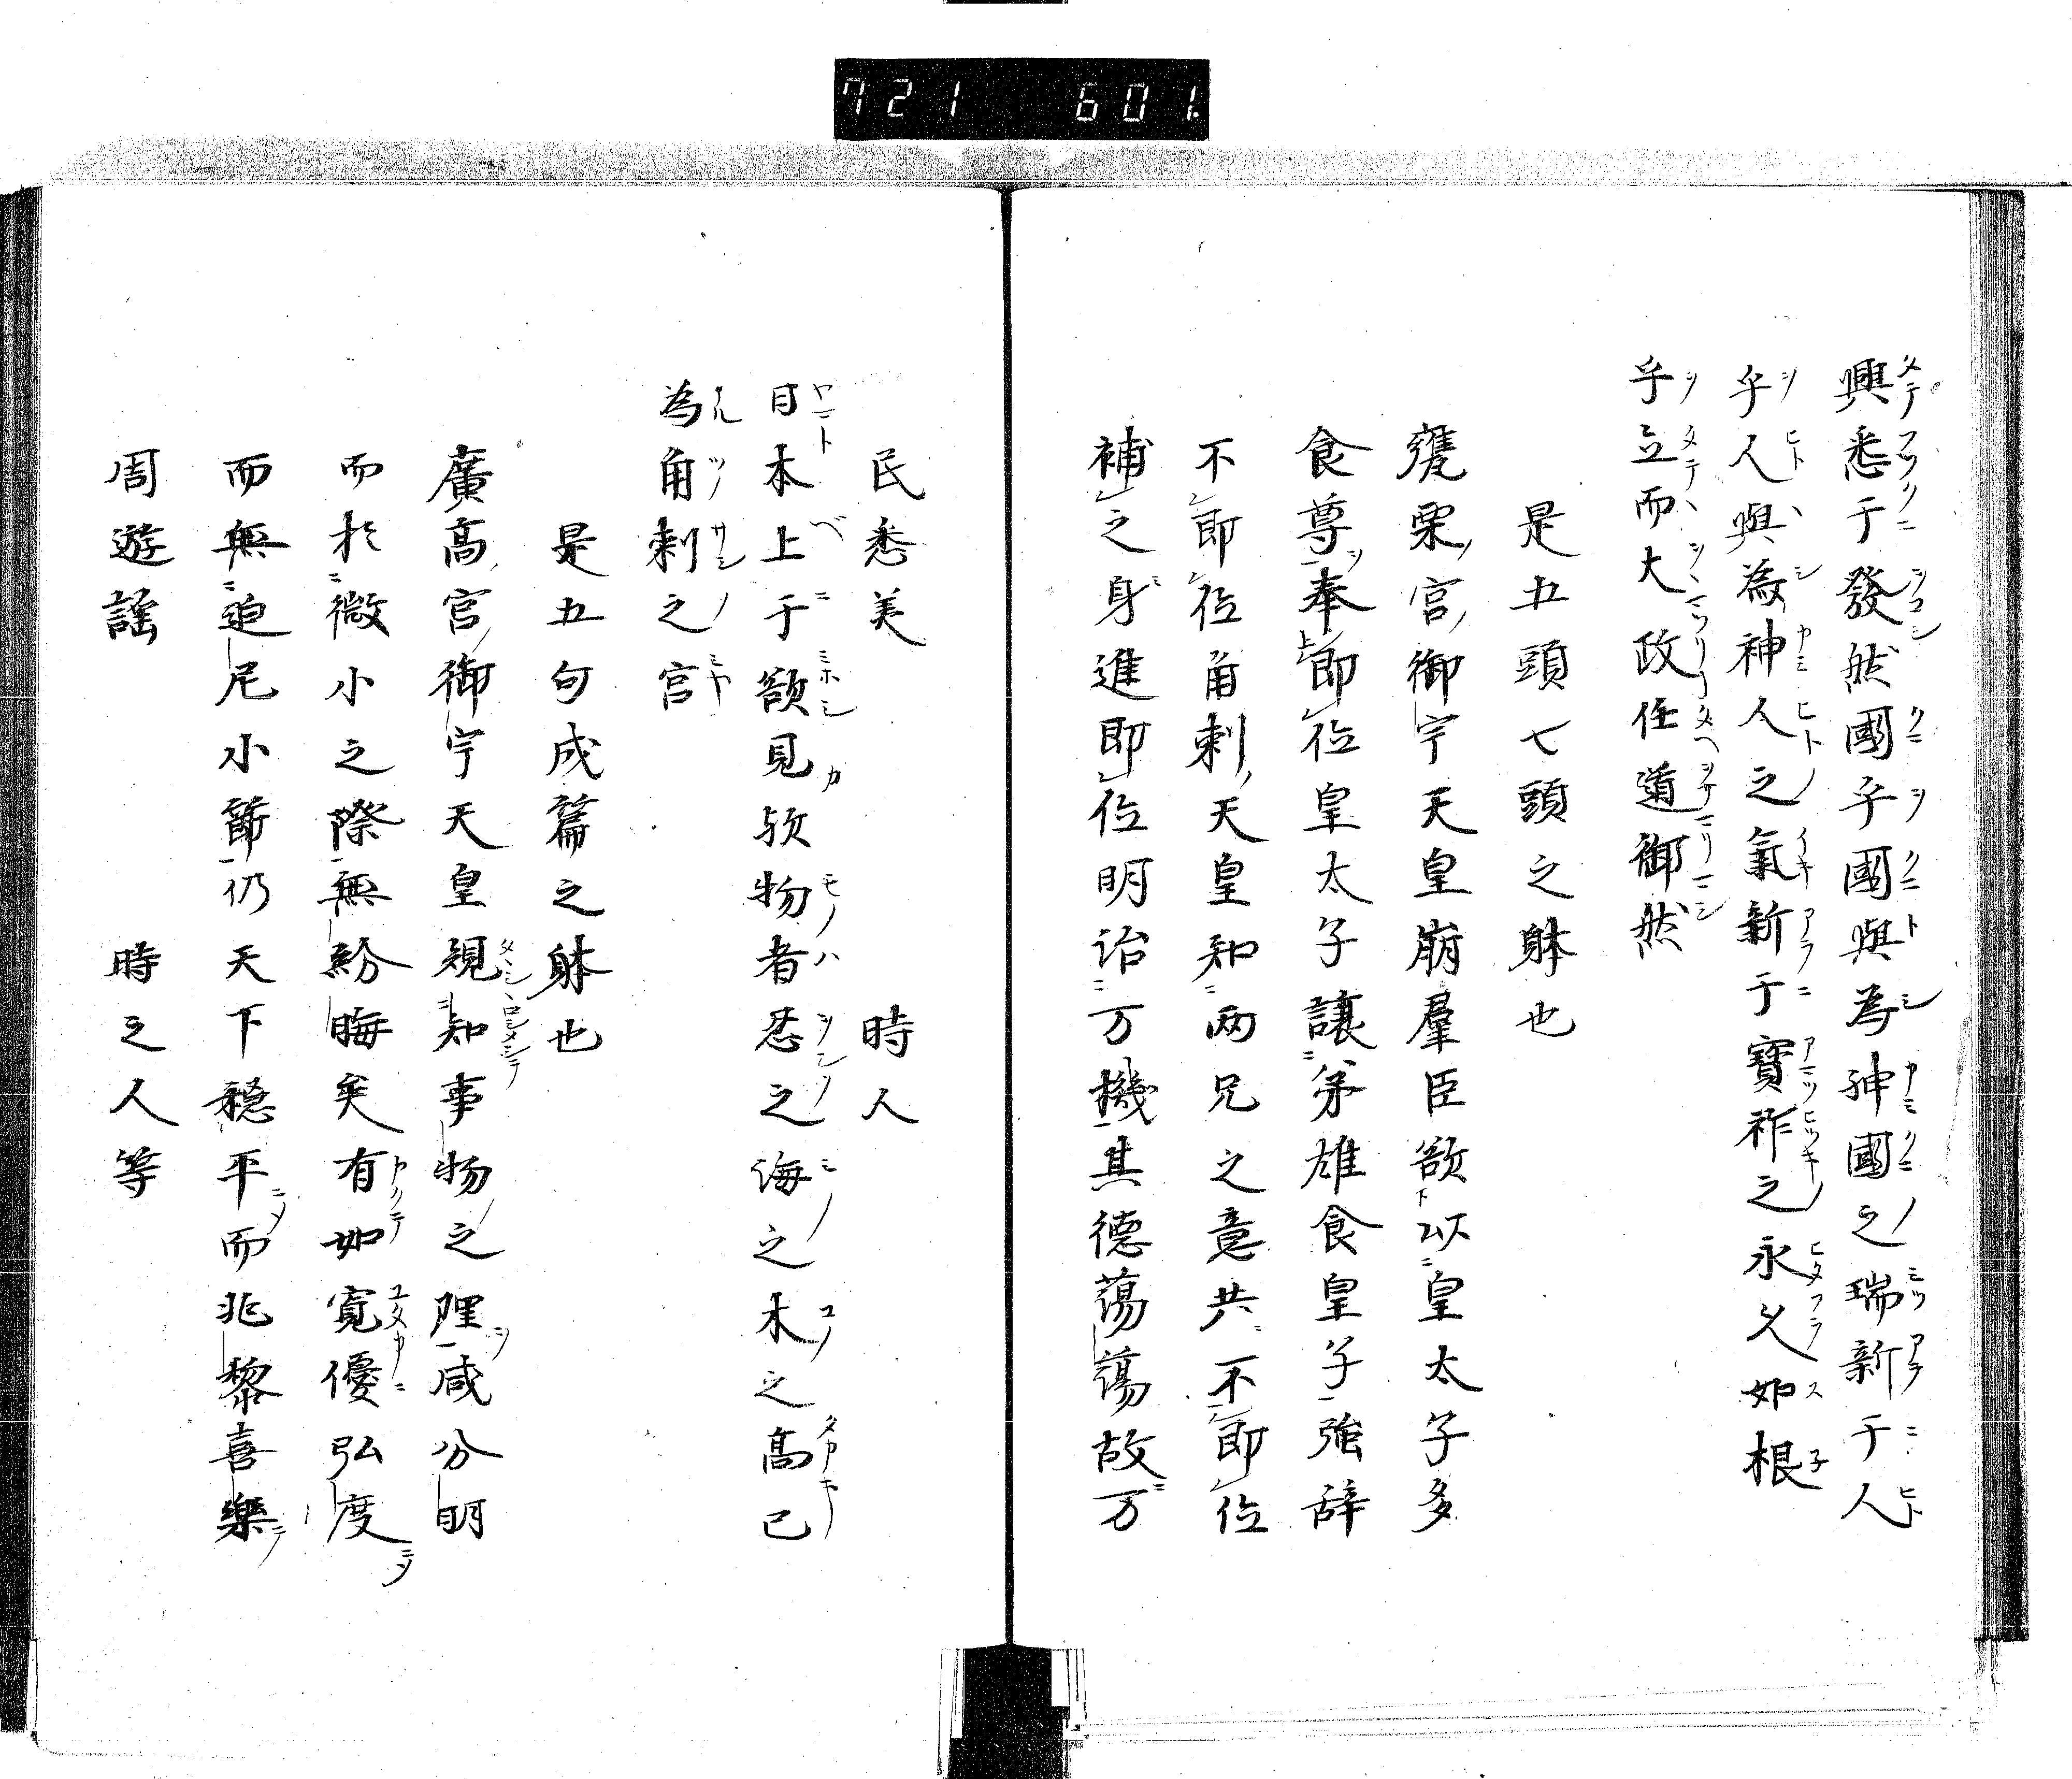 721 601.
興悉于發然國乎國與為神國之瑞新于人
乎人與為神人之氣新于寶祚之永乂如根
乎立而大政任道御然
是五頭七頭之躰也
甕栗宮御宇天皇崩羣臣欲以皇太子多
食尊奉即位皇太子讓弟雄食皇子強辞
不即位角刺天皇知兩兄之意共不即位
補之身進即位明治万機其德蕩蕩故万
民悉美 時人
日本上于欲見欤物者忍之海之木之高已
為角刺之宮
是五句成篇之躰也
廣高宮御宇天皇規知事物之理咸分明
而於微小之際無紛晦矣有如寬優弘度
而無迫尼小節仍天下穏平而兆黎喜樂
周遊謡 時之人等